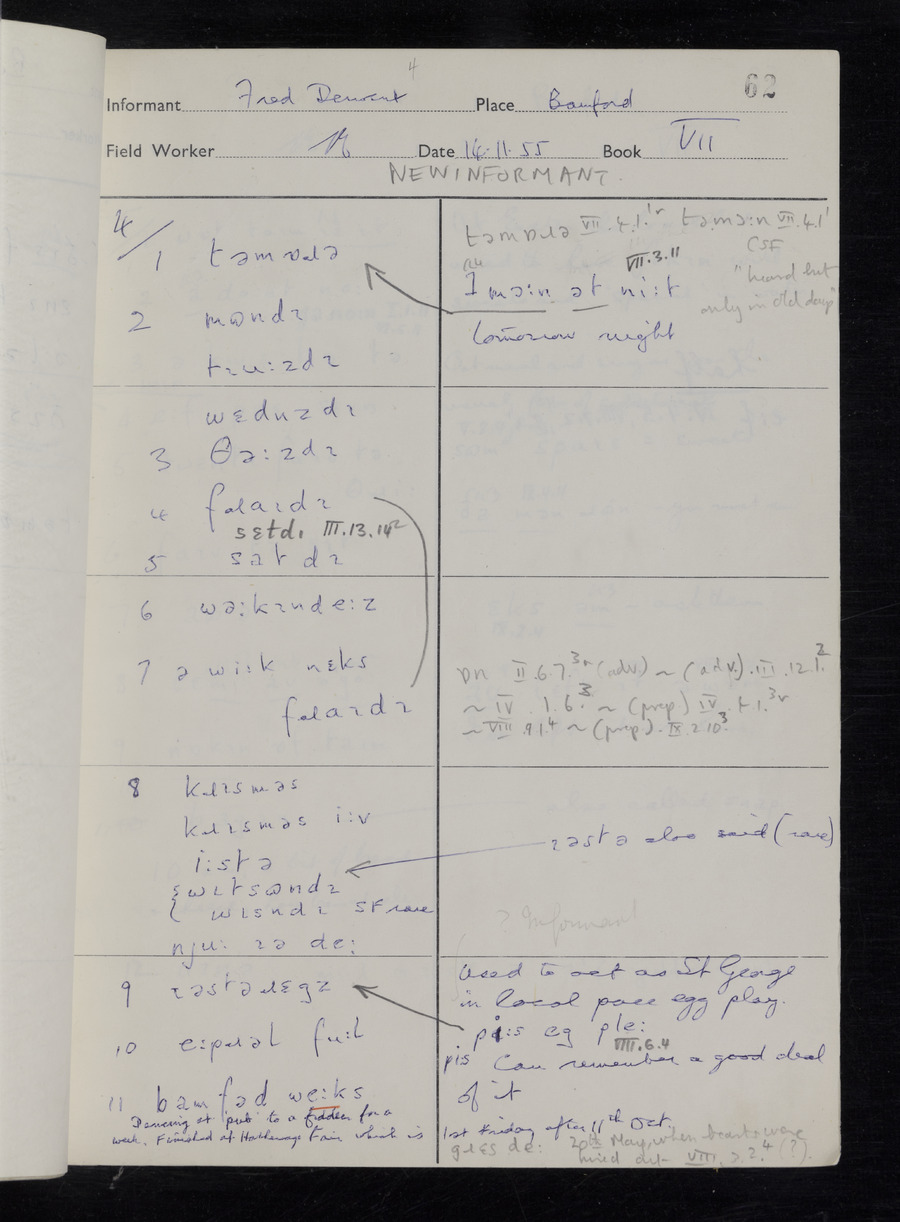 4
62
Informant Fred Derwent Place Bamford
Field Worker Date 14.11.55 Book VII
NEW INFORMANT.
4/
1 təmɒɹə
2 mʊndɪ
tɪu:zdɪ
wɛdnzdɪ
3 θə:zdɪ
4 fɹaɪdɪ
sɛtdɪ III.13.14
5 satdɪ
6 wə:kɪnde:z
7 ə wi:k nɛks
fɹaɪdɪ
8 kɹɪsməs
kɹɪsməs i:v
i:stə
wɪtsʊndɪ
wɪsndɪ SF rare
nju: ɪə de:
9 ɪəstəɹɛgz
10 e:pɹəl fu:l
11 bamfəd we:ks
Dancing at 'pub' to a fiddler for a
week. Finished at Hathersage Fair which is
təmɒɹə VII.4.1 təmɔ:n VII.4.1
CSF
"heard but
only in old days"
VII.3.11
mɔ:n ət ni:t
tomorrow night
ɒn II.6.7 (adv.) ~ (adv.) III.12.1
~ IV.1.6 ~ (prep) IV
~ VIII.9.1 ~ (prep). IX.2.10
ɪəstə also said (rare)
? Informant
used to act as St George
in local pace egg play.
eg ple:
VIII.6.4
Can remember a good deal
of it
1st Friday after 11th Oct.
20th May, when beasts were
VIII